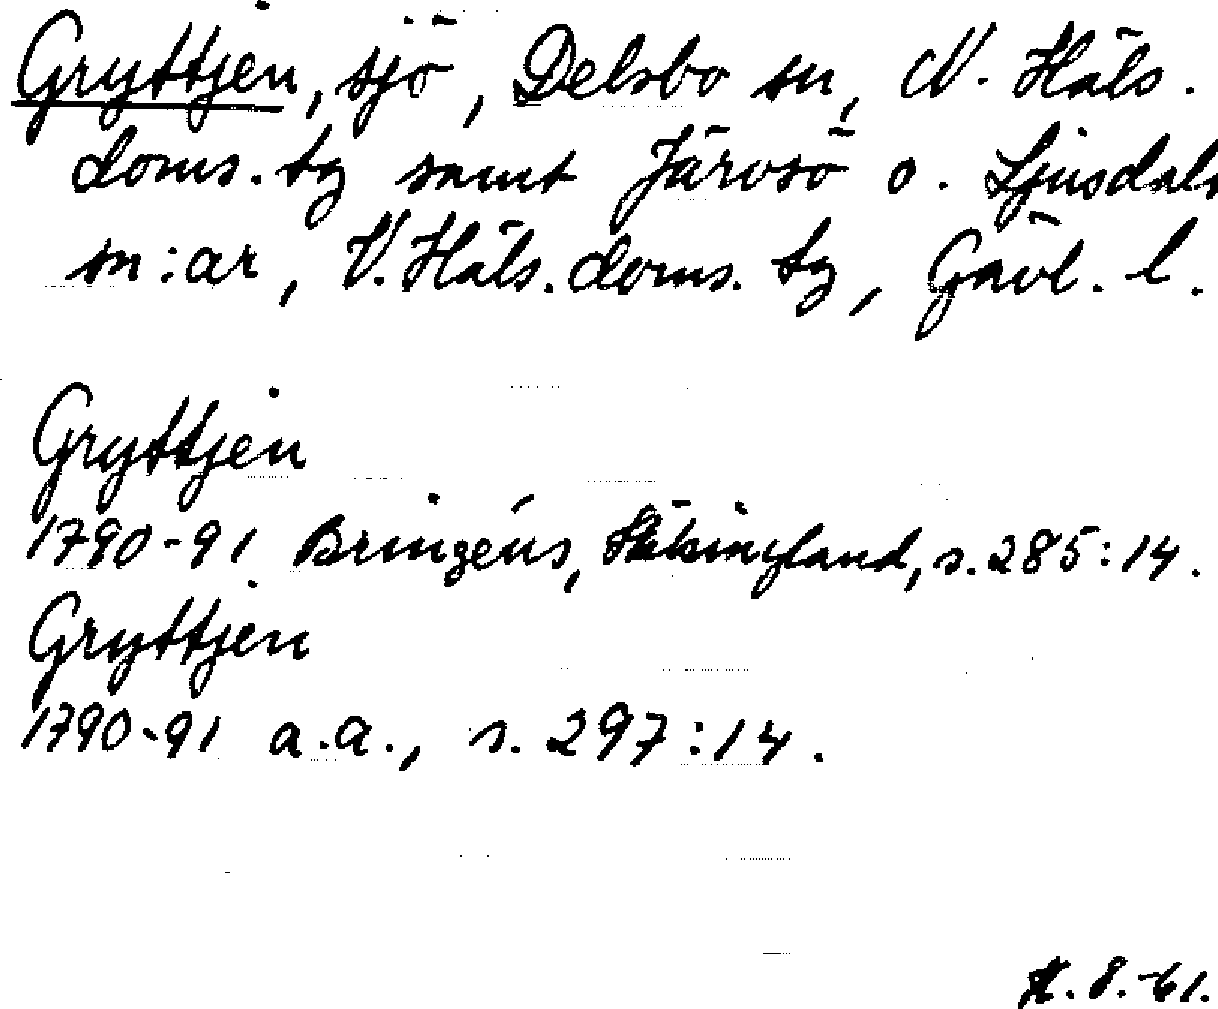 Gryttjen, sjö, Delsbo sn, N. Häls.
doms. tg samt Järvsö o. Ljusdals
sn:ar, V. Häls. doms. tg, Gävl. l.
Gryttjen
1790-91 Bringéus, Hälsingland, s. 285:14.
Gryttjen
1790-91 a.a., s. 297:14.
8.-61.